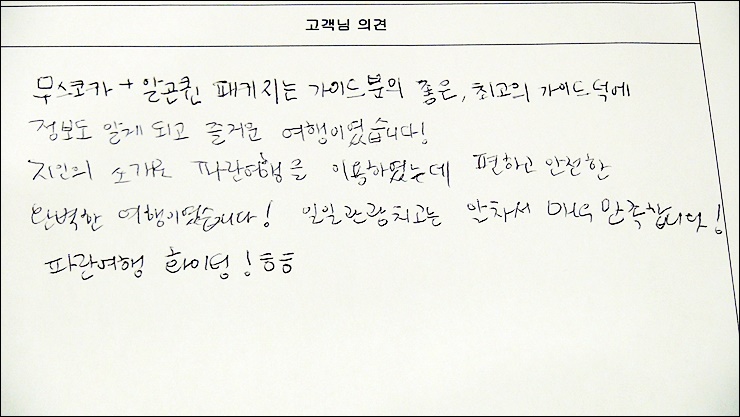 고객님 의견
무스코카 + 알곤퀸 패키지는 가이드분의 좋은, 최고의 가이드 덕에
정보도 알게 되고 즐거운 여행이였습니다!
지인의 소개로 파란여행을 이용하였는데 편하고 안전한
완벽한 여행이였습니다! 일일관광치고는 알차서 매우 만족합니다!
파란여행 화이팅! ㅎㅎ